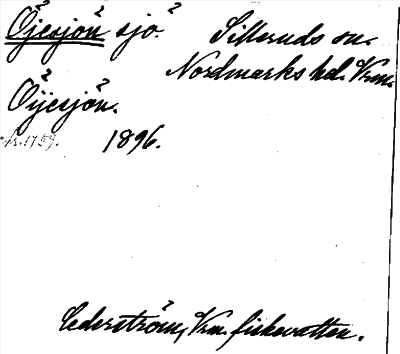 Öjesjön sjö. Silleruds sn.
Nordmarks hd. Vrm.
Öijesjön.
1896.
Cederström, Vrm. fiskevatten.